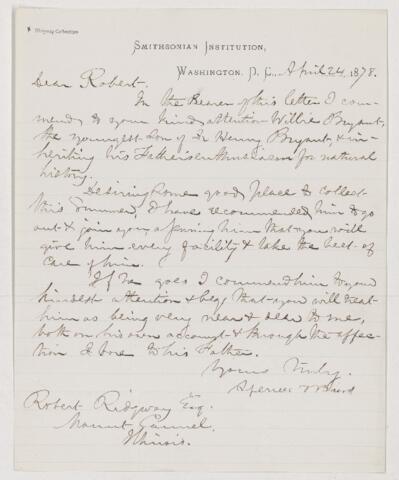 Ridgway Collection
SMITHSONIAN INSTITUTION,
WASHINGTON, D. C., April 24, 1878.
Dear Robert.
In the Bearer of this letter I com-
mend, to your kind attention Willie Bryant,
the youngest Son of Dr Henry Bryant, & in-
heriting his Father's enthusiasm for natural
history.
Desiring Some good place to collect
this Summer, I have recommended him to go
out & join you, assuring him that you will
give him every facility & take the best of
care of him.
If he goes I commend him to your
kindest attention & beg that you will treat
him as being very near & dear to me,
both on his own account & through the affec-
tion I bore to his Father.
Yours Truly,
Spencer F Baird
Robert Ridgway Esq.
Mount Carmel,
Illinois.